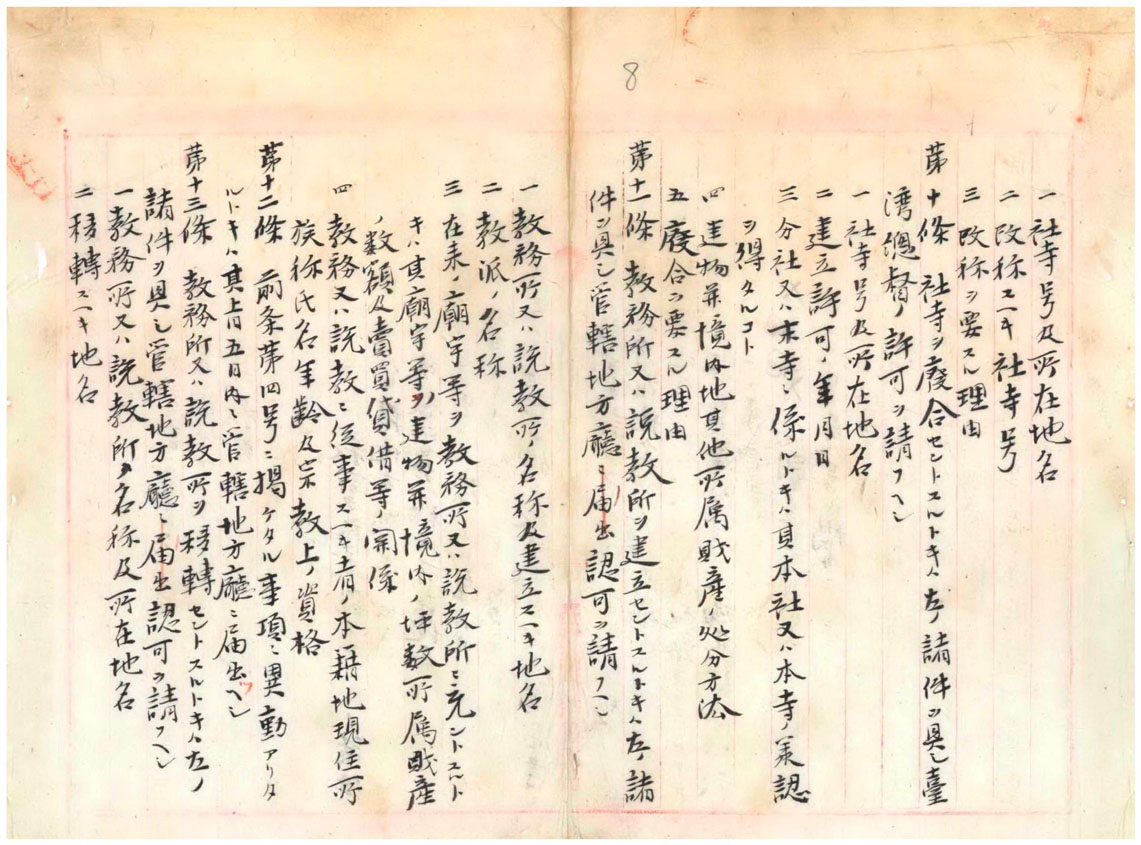 8
一 社寺号及所在地名
二 改称スヘキ社寺号
三 改称ヲ要スル理由
第十條 社寺ヲ廃合セントスルトキハ左ノ諸件ヲ具シ臺
湾總督ノ許可ヲ請フヘシ
一 社寺号及所在地名
二 建立許可ノ年月日
三 分社又ハ末寺ニ係ルトキハ其本社又ハ本寺ノ承認
ヲ得タルコト
四 建物并境内地其他所属財産ノ処分方法
五 廢合ヲ要スル理由
第十一條 教務所又ハ説教所ヲ建立セントスルトキハ左ノ諸
件ヲ具シ管轄地方廳ニ届出認可ヲ請フヘシ
一 教務所又ハ説教所ノ名称及建立スヘキ地名
二 教派ノ名称
三 在来ノ廟宇等ヲ教務所又ハ説教所ニ充ントスルト
キハ其廟宇等ノ建物并境内ノ坪数所属財産
ノ数額及賣買貸借等ノ関係
四 教務又ハ説教ニ従事スヘキ者ノ本籍地現住所
族称氏名年齢及宗教上ノ資格
第十二條 前条第四号ニ掲ケタル事項ニ異動アリタ
ルトキハ其上日五日内ニ管轄地方廳ニ届出ヘシ
第十三條 教務所又ハ説教所ヲ移轉セントスルトキハ左ノ
諸件ヲ具シ管轄地方廳ニ届出認可ヲ請フヘシ
一 教務所又ハ説教所ノ名称及所在地名
二 移轉スヘキ地名